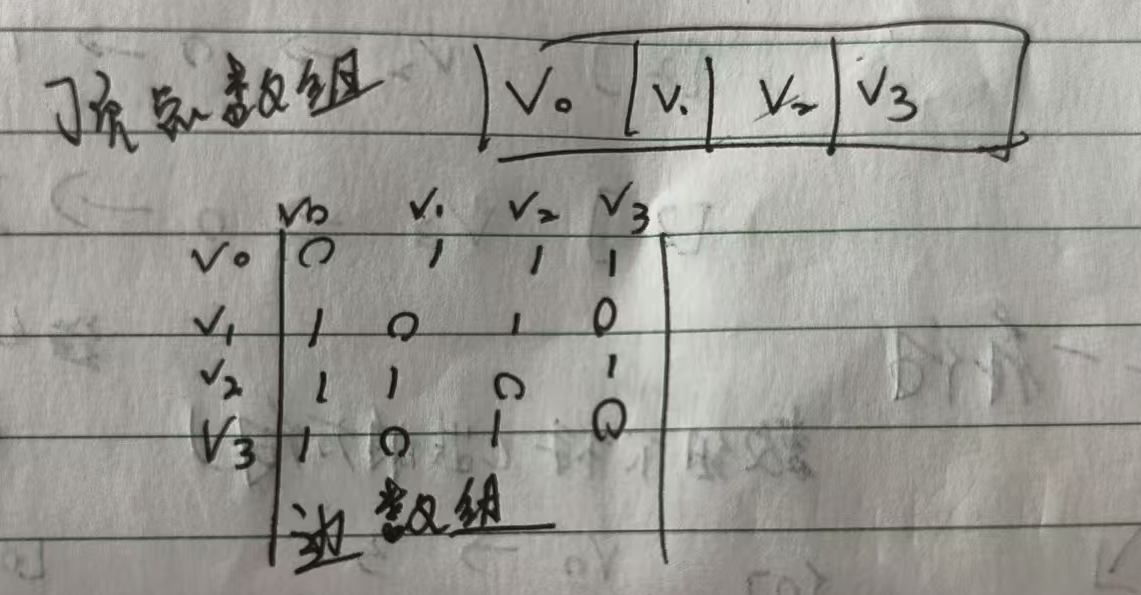 顶点数组 V0 V1 V2 V3
V0 V1 V2 V3
V0 0 1 1 1
V1 1 0 1 0
V2 1 1 0 1
V3 1 0 1 0
边数组